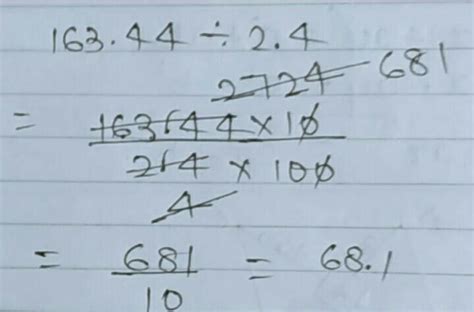 163.44 ÷ 2.4
2724 681
= 163.44 × 10
2.4 × 100
4
= 681 = 68.1
10